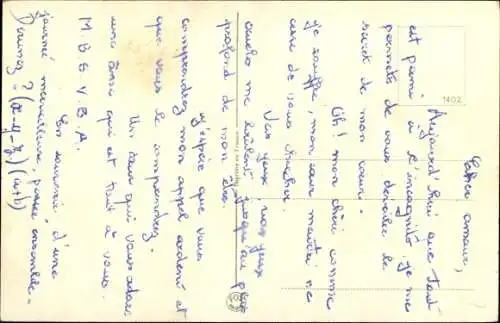 Cher amour,
Aujourd'hui que tout
est permis à l'incognito je me
permets de vous dévoiler le
secret de mon cœur.
Oh! mon chéri comme
je souffre, mon cœur meurtri ne
cesse de vous
Vos yeux, vos yeux
me brûlent jusqu'au plus
profond de mon être.
J'espère que vous
comprendrez mon appel ardent et
que vous le comprendrez.
Un cœur qui vous adore
une âme qui est tout à vous.
M. B. G. V. B. A.
En souvenir d'une
journée merveilleuse, passée ensemble.
Donnez ? = (x-y-z) (a+b)
1402